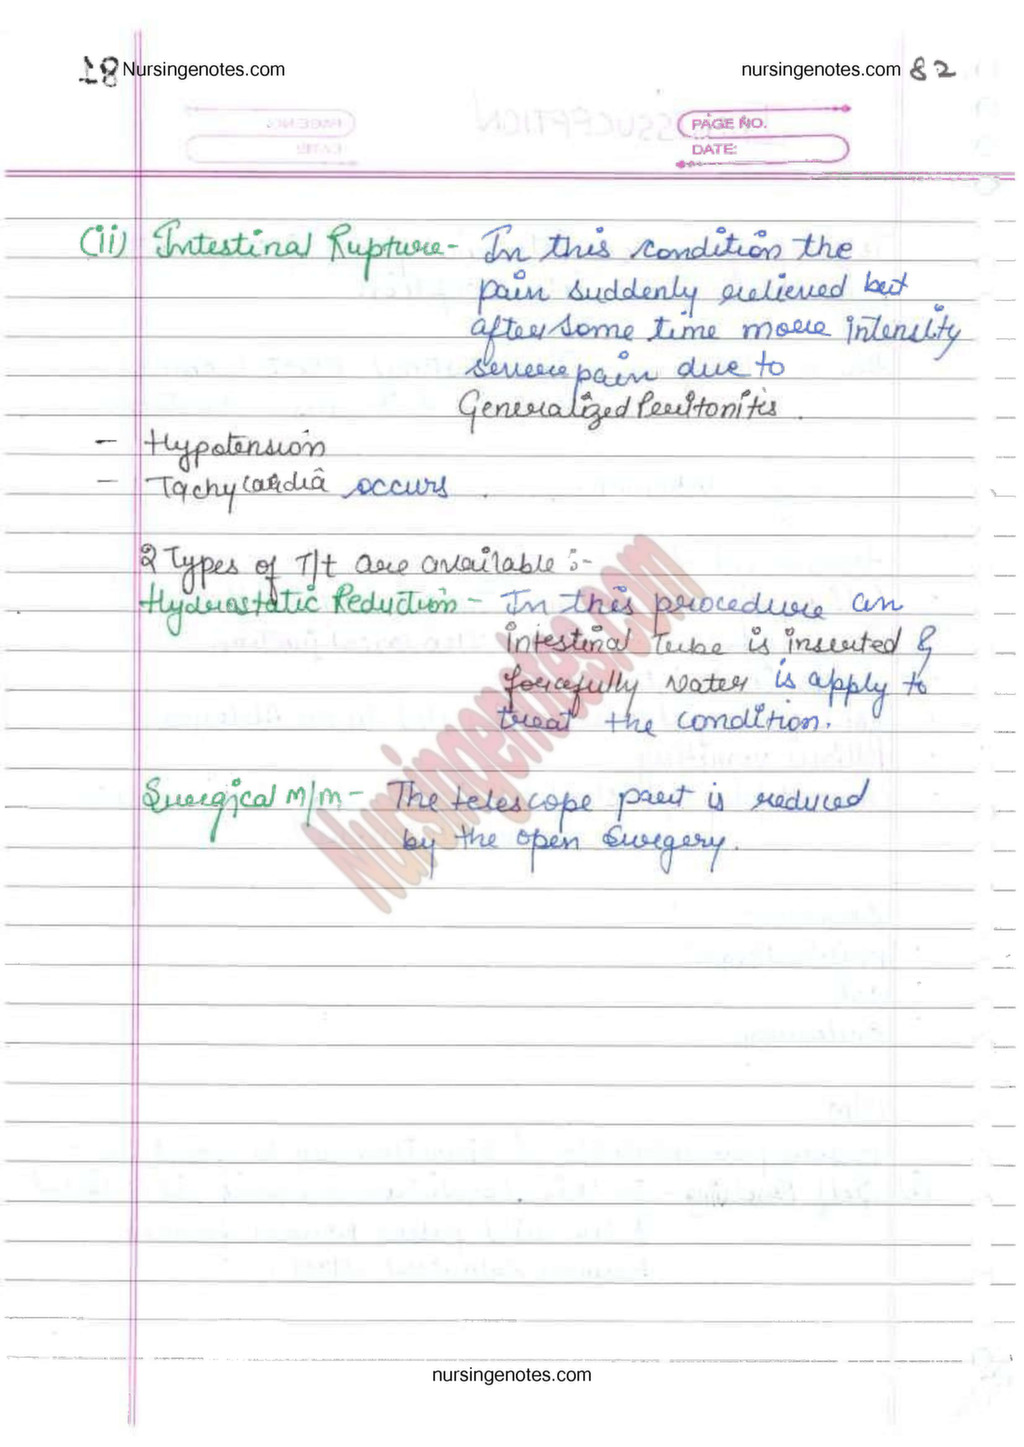 Nursingenotes.com
nursingenotes.com 82
PAGE NO.
DATE:
(ii) Intestinal Rupture - In this condition the
pain suddenly relieved but
after some time more intensity
severe pain due to
Generalized Peritonitis.
- Hypotension
- Tachycardia occurs.
2 Types of T/t are available :-
Hydrostatic Reduction - In this procedure an
intestinal Tube is inserted &
forcefully water is apply to
treat the condition.
Surgical m/m - The telescope part is reduced
by the open surgery.
Nursingenotes.com
nursingenotes.com